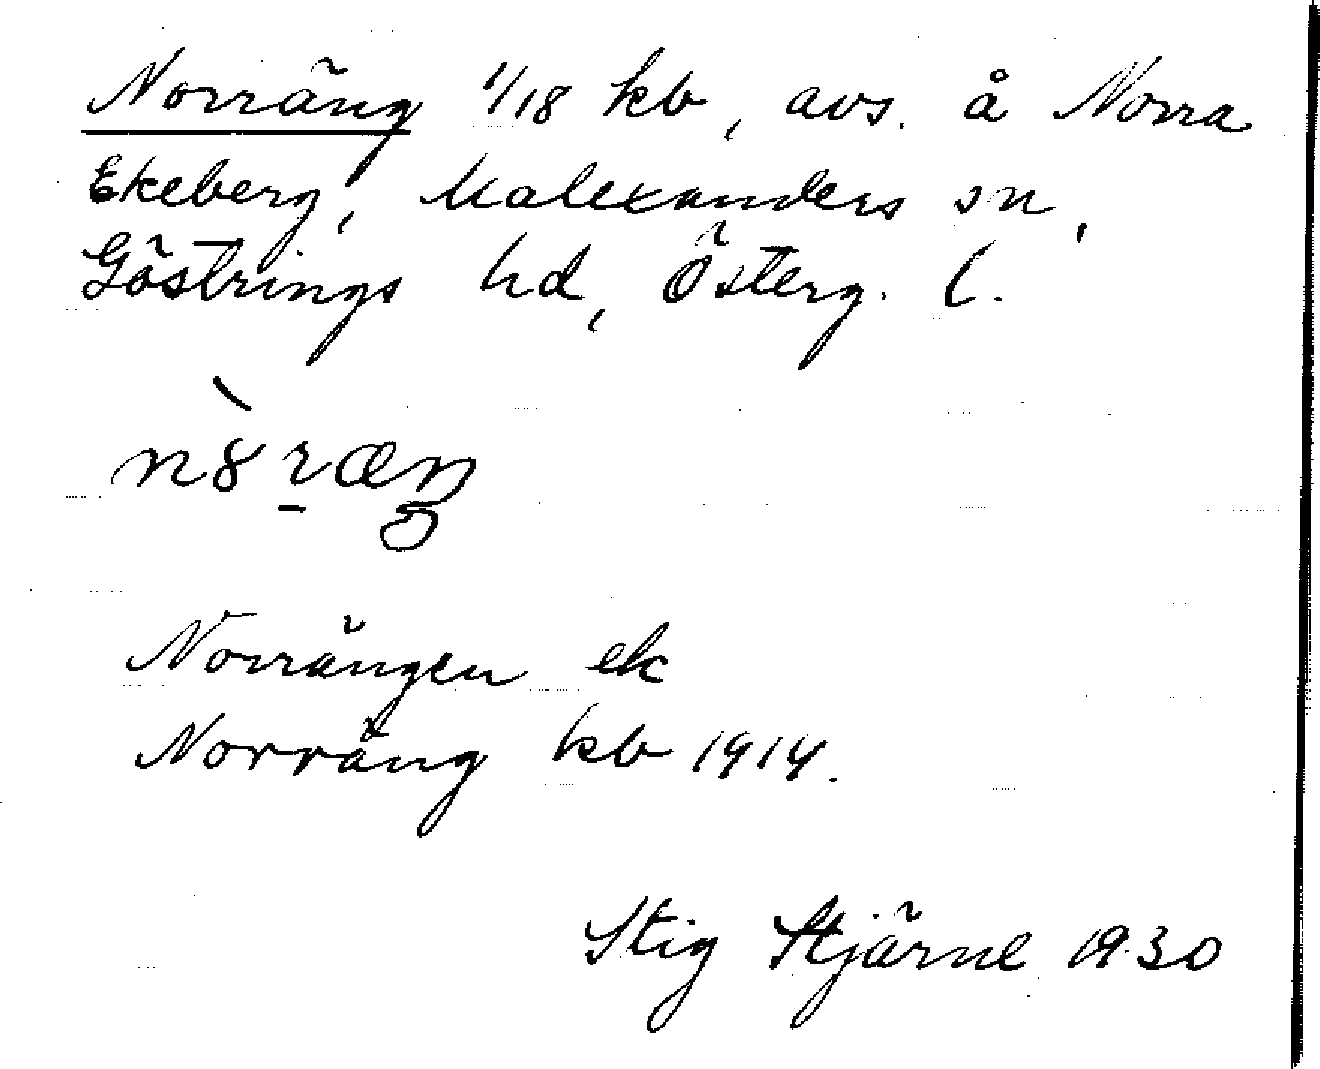 Norräng 1/18 kb, avs. å Norra
Ekeberg, Malexanders sn,
Göstrings hd, Österg. l.
n8̀ ræŋ
Norrängen ek
Norräng kb 1914.
Stig Stjärne 1930